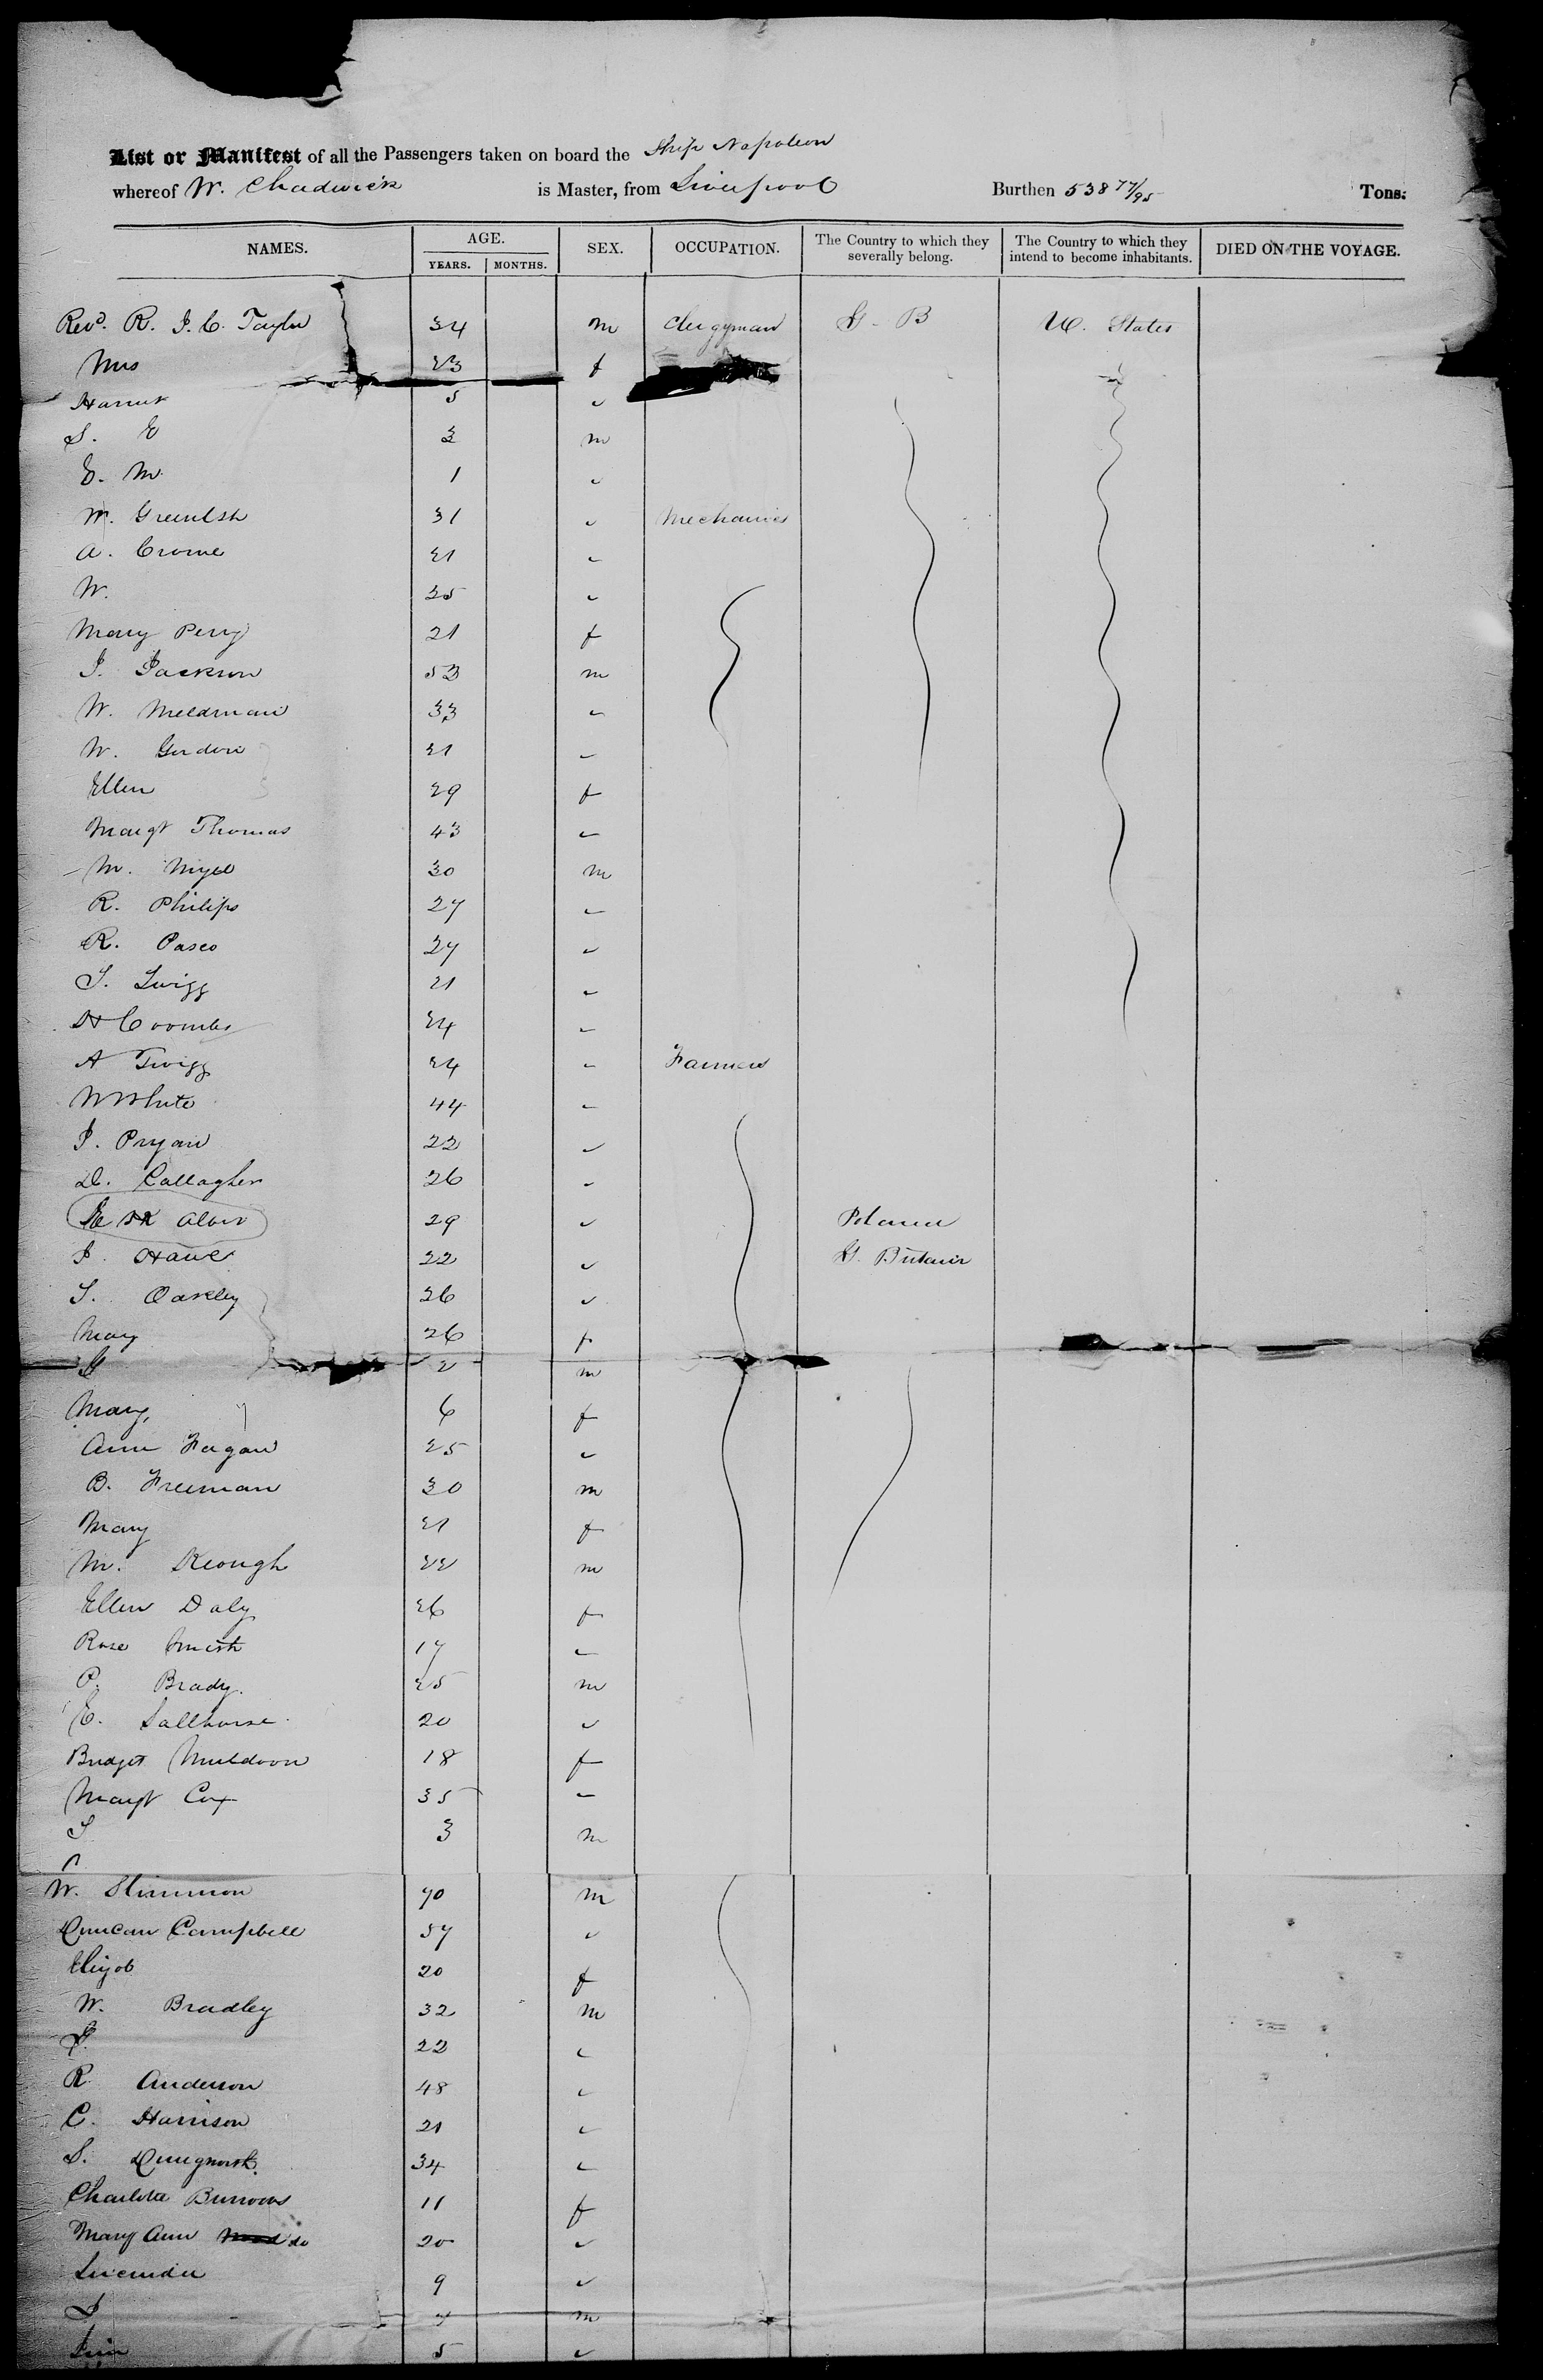 List or Manifest of all the Passengers taken on board the Ship Napoleon
whereof W. Chadwick is Master, from Liverpool Burthen 538 77/95 Tons.
NAMES. AGE. SEX. OCCUPATION. The Country to which they severally belong. The Country to which they intend to become inhabitants. DIED ON THE VOYAGE.
YEARS. MONTHS.
Revd. R. J. C. Taylor 34 m Clergyman G. B U. States
Mrs 23 f
Harriet 5 "
S. E 3 m
E. M 1 "
W. 31 " Mechanics
A. Crome 21 "
W. 25 "
Mary Perry 21 f
J. Jackson 53 m
W. Meldrum 33 "
W. Gordon 21 "
Ellen 29 f
Margt Thomas 43 "
M. 30 m
R. Philips 27 "
R. Pasco 27 "
T. Twigg 21 "
H Coombs 24 "
A Twigg 24 " Farmers
W White 44 "
J. Pryan 22 "
D. Callagher 26 "
29 " Poland
J. 22 " G. Britain
T. Oakley 26 "
Mary 26 f
G 2 m
Mary 6 f
Ann Fagan 25 "
B. Freeman 30 m
Mary 21 f
M. Keough 22 m
Ellen Daly 26 f
Rose Smith 17 "
P. Brady 25 m
E. 20 "
Bridget Muldoon 18 f
Margt Cox 35 "
T 3 m
W. Slimmon 70 m
Duncan Campbell 57 "
Elizab 20 f
W. Bradley 32 m
22 "
R. Anderson 48 "
C. Harrison 21 "
S. 34 "
Charlotte Burrows 11 f
Mary Ann do 20 "
Lucinda 9 "
J m
5 "